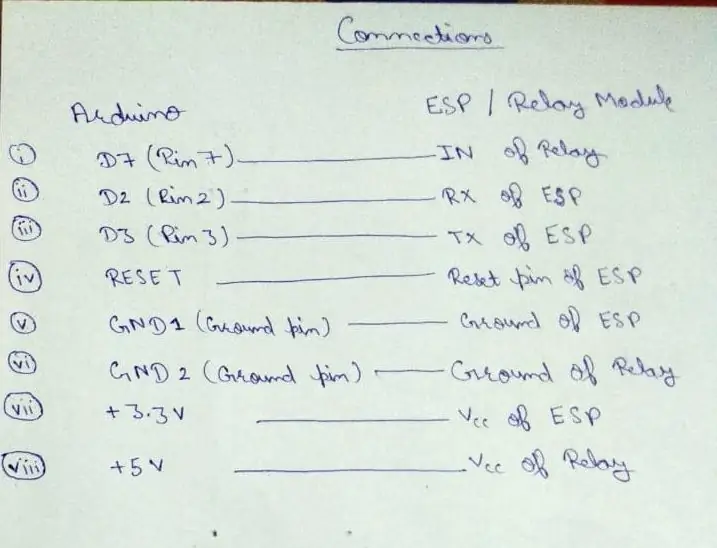 Connections
Arduino ESP / Relay Module
(i) D7 (Pin 7) IN of Relay
(ii) D2 (Pin 2) RX of ESP
(iii) D3 (Pin 3) TX of ESP
(iv) RESET Reset pin of ESP
(v) GND 1 (Ground pin) Ground of ESP
(vi) GND 2 (Ground pin) Ground of Relay
(vii) +3.3V Vcc of ESP
(viii) +5V Vcc of Relay